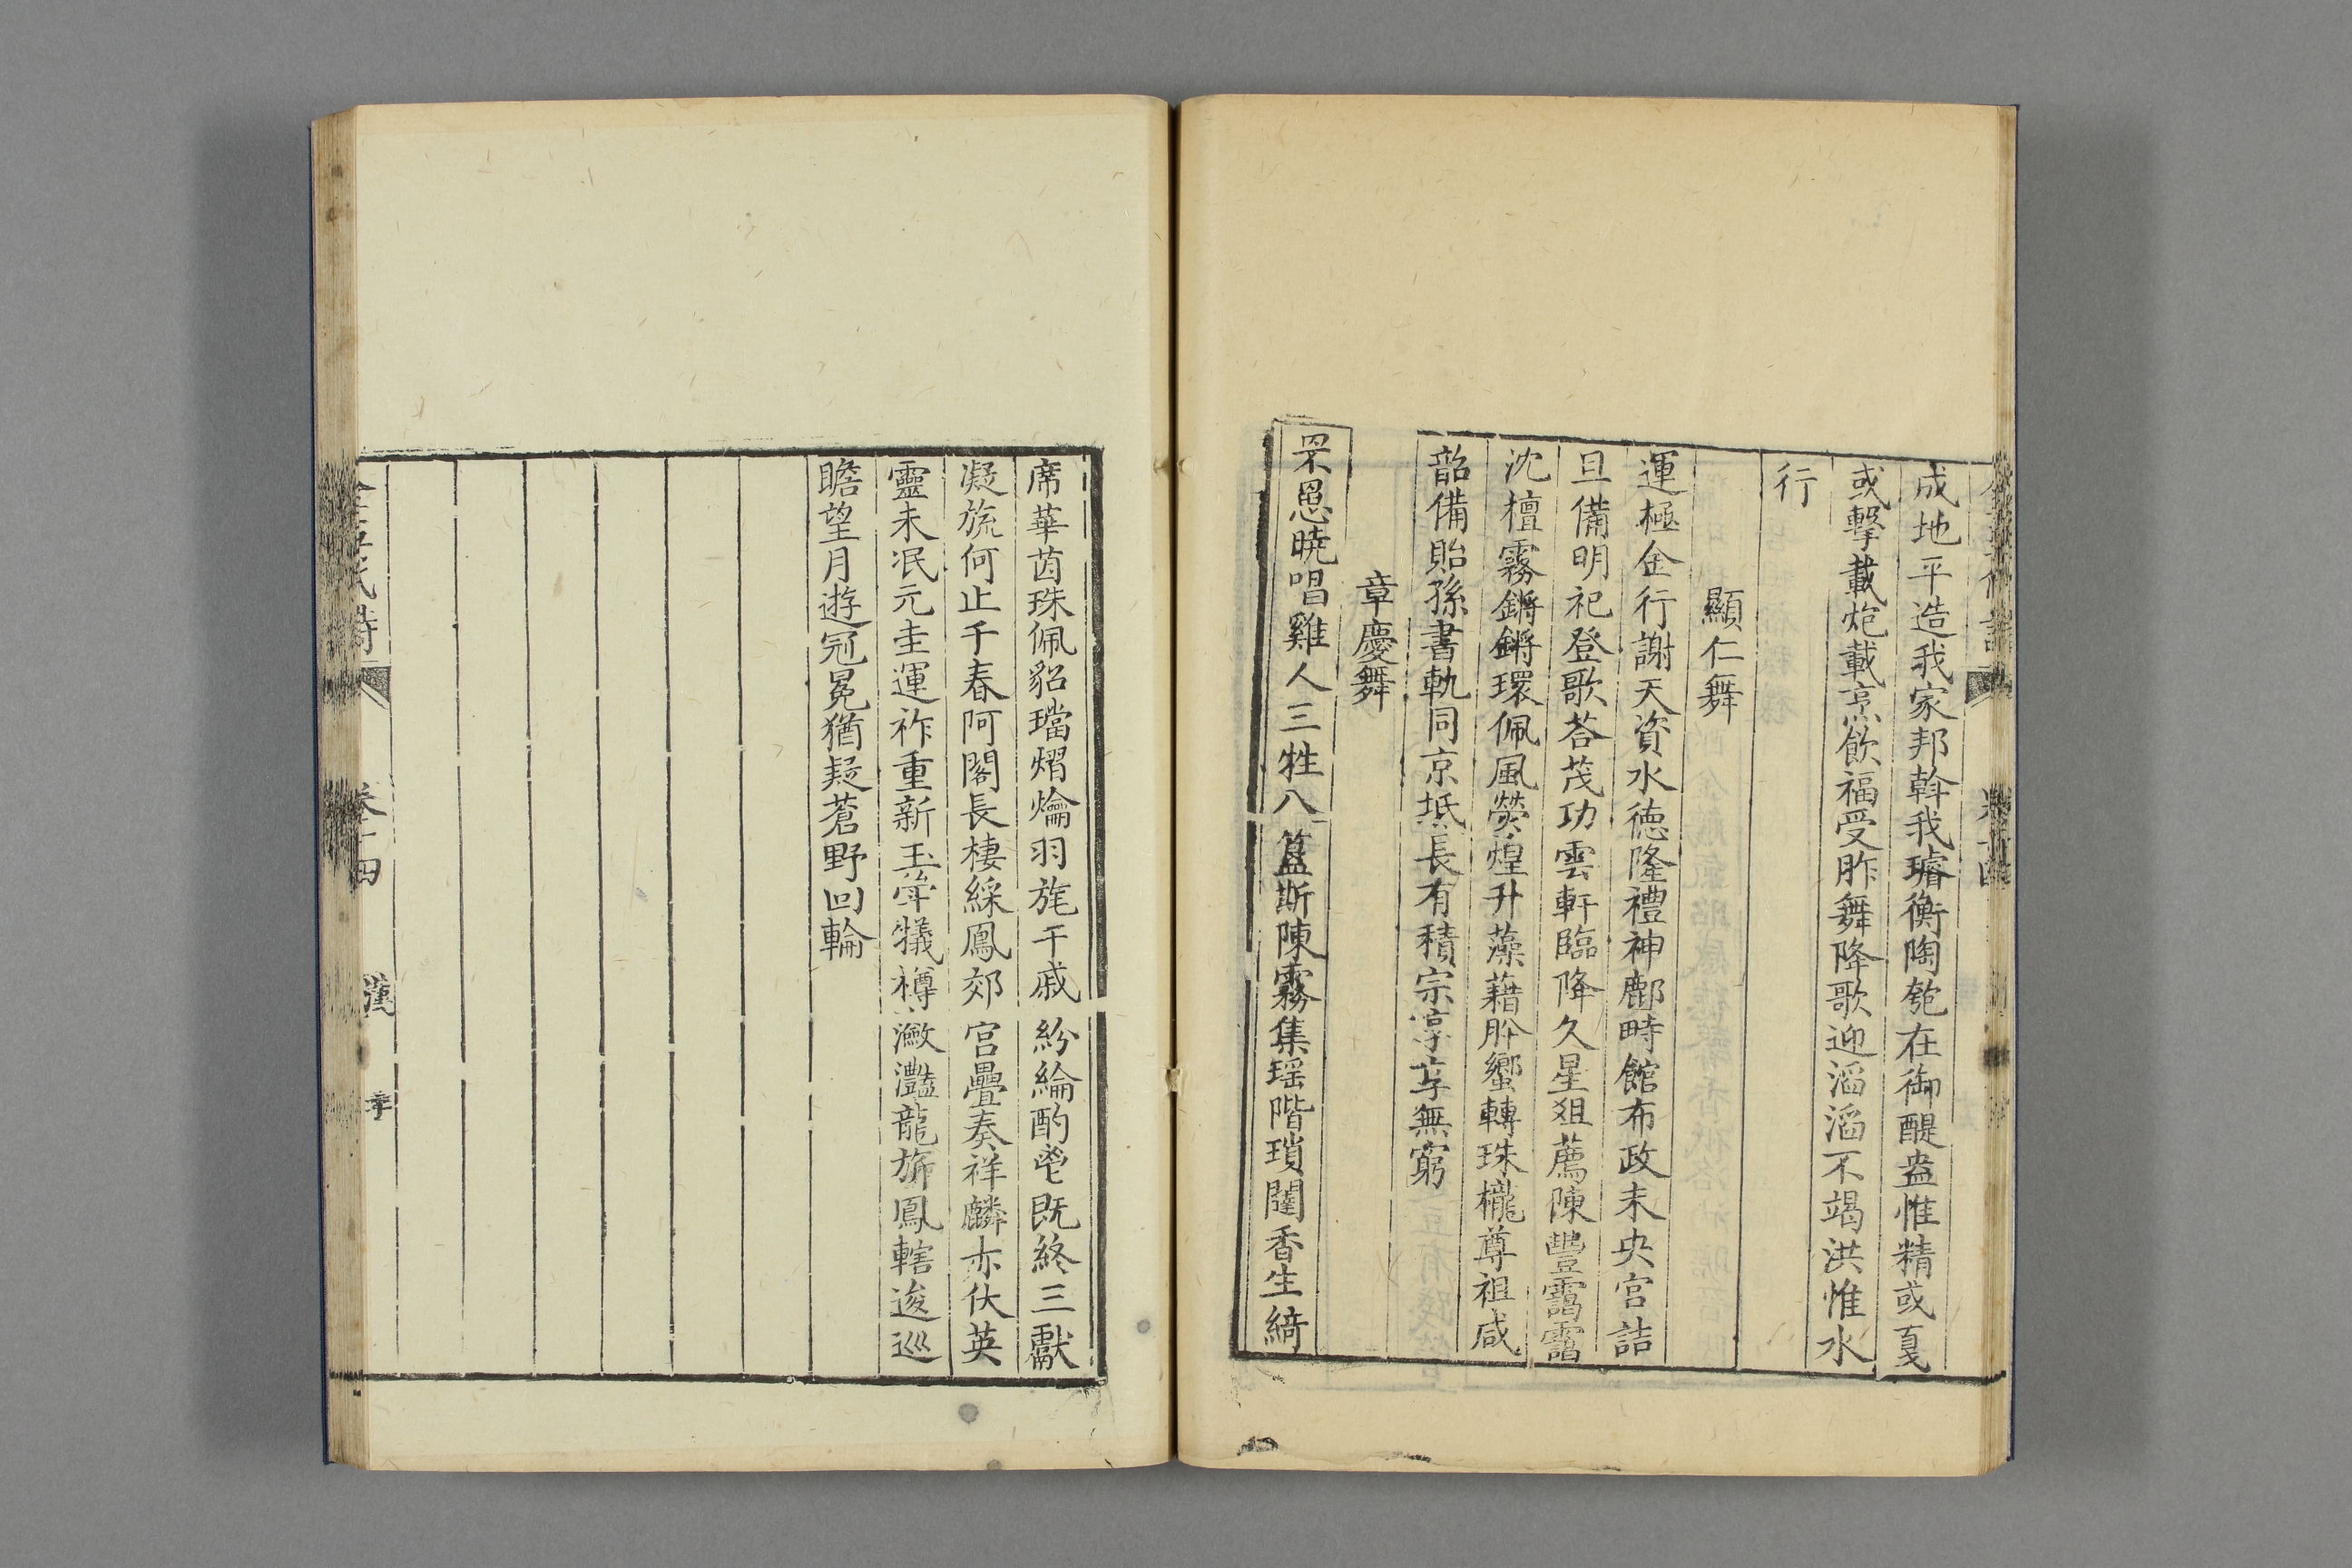 成地平造我家邦斡我璿衡陶匏在御醍盎惟精或戛
或擊載炮載烹飲福受胙舞降歌迎滔滔不竭洪惟水
行
顯仁舞
運極金行謝天資水德隆禮神鄜畤館布政未央宮詰
旦備明祀登歌荅茂功雲軒臨降久星俎薦陳豐靄靄
沈檀霧鏘鏘環佩風熒煌升藻藉肸蠁轉珠櫳尊祖咸
韶備貽孫書軌同京坻長有積宗淳享無窮
章慶舞
罘罳曉唱雞人三牲八簋斯陳霧集瑶階瑣闥香生綺
席華茵珠佩貂璫熠爚羽旄干戚紛綸酌鬯既終三獻
凝旒何止千春阿閣長棲綵鳳郊宮疊奏祥麟亦伏英
靈未泯元圭運祚重新玉斝犧樽瀲灧龍旂鳳轄逡巡
瞻望月遊冠冕猶疑蒼野回輪
卷十四
漢